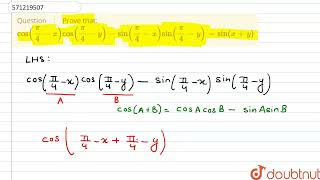 571219507
Question Prove that:
cos(π/4 - x)cos(π/4 - y) - sin(π/4 - x)sin(π/4 - y) = sin(x + y)
LHS:
cos(π/4 - x) cos(π/4 - y) - sin(π/4 - x) sin(π/4 - y)
A B
cos(A+B) = cosA cosB - sinA sinB
cos( π/4 - x + π/4 - y)
doubtnut